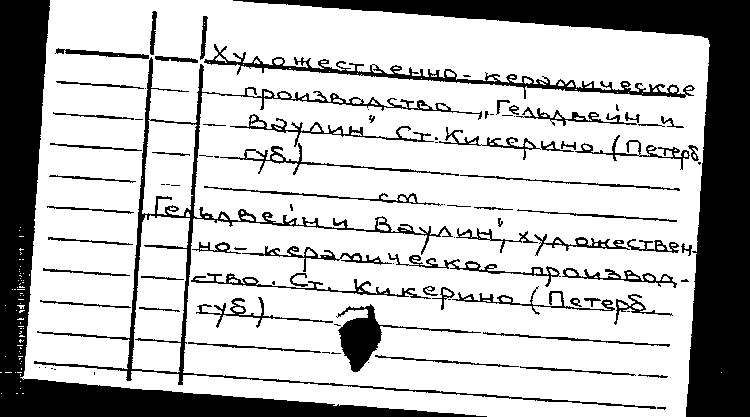 Художественно-керамическое
производство „Гельдвейн и
Ваулин" Ст. Кикерино. (Петерб.
губ.)
см
„Гельдвейн и Ваулин", художествен-
но-керамическое производ-
ство. Ст. Кикерино (Петерб.
губ.).